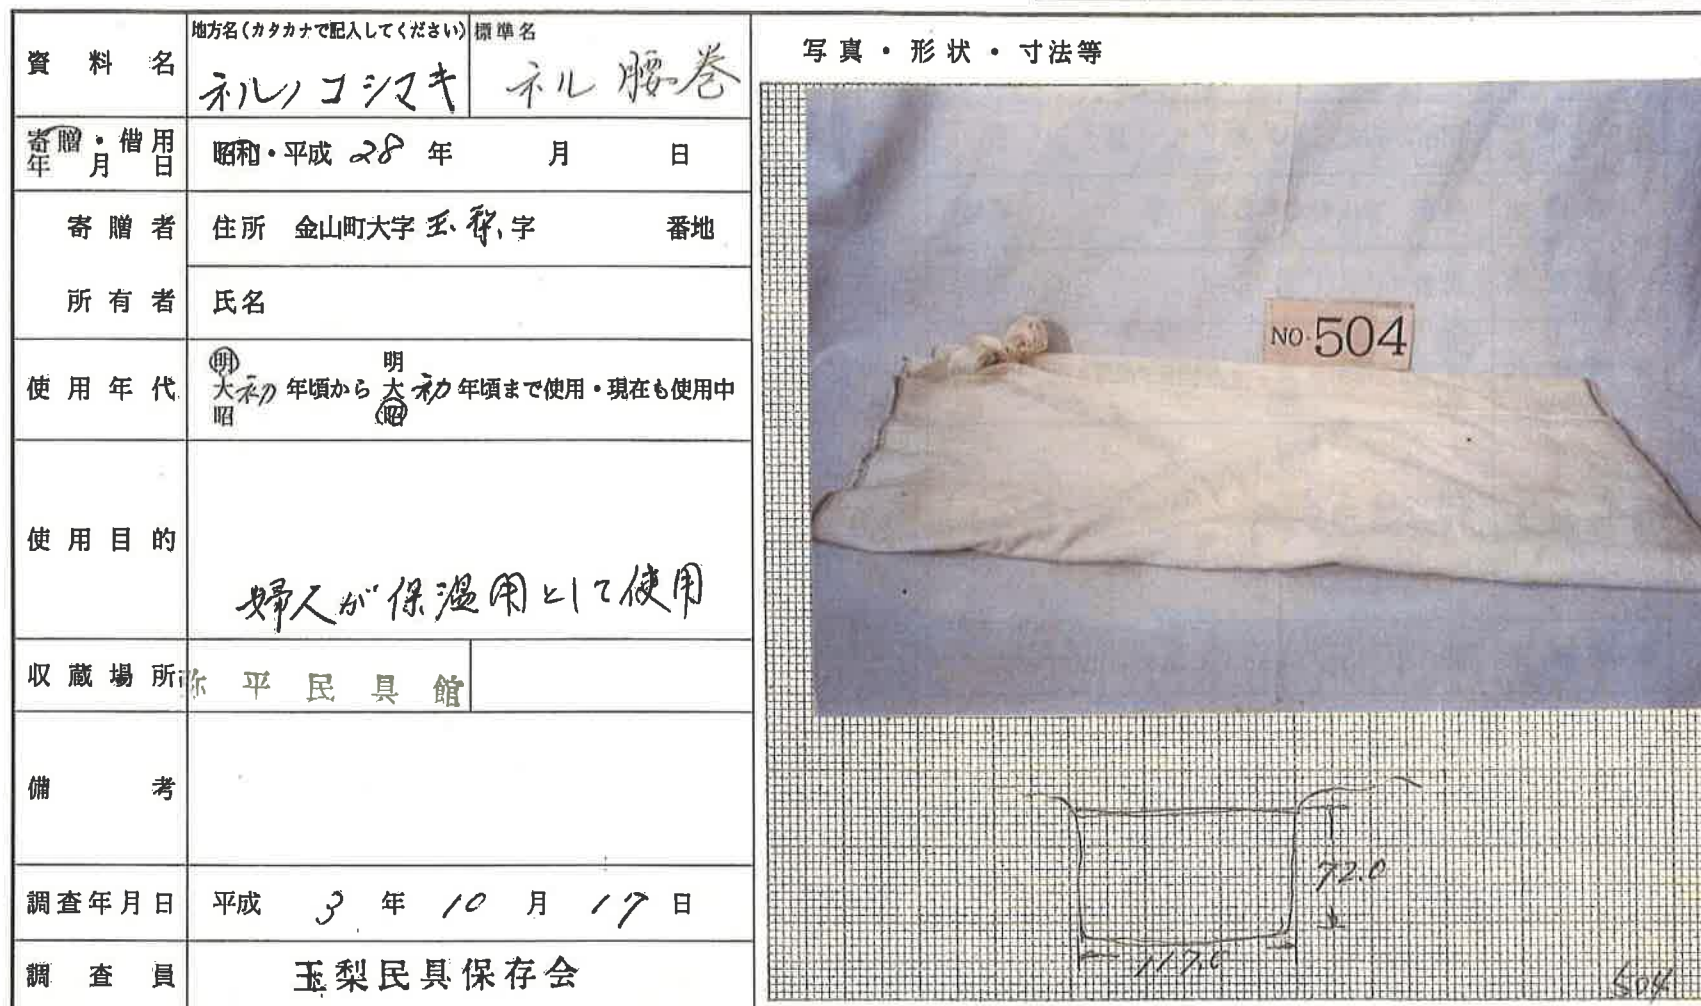 資料名
地方名(カタカナで記入してください)
ネルノコシマキ
標準名
ネル腰巻
寄贈・借用
年月日
昭和・平成 28 年 月 日
寄贈者
住所 金山町大字 玉梨 字 番地
所有者
氏名
使用年代
明
大 初 年頃から
昭
明
大 初 年頃まで使用・現在も使用中
昭
使用目的
婦人が保温用として使用
収蔵場所
弥平民具館
備考
調査年月日
平成 3 年 10 月 17 日
調査員
玉梨民具保存会
写真・形状・寸法等
NO.504
72.0
117.0
504